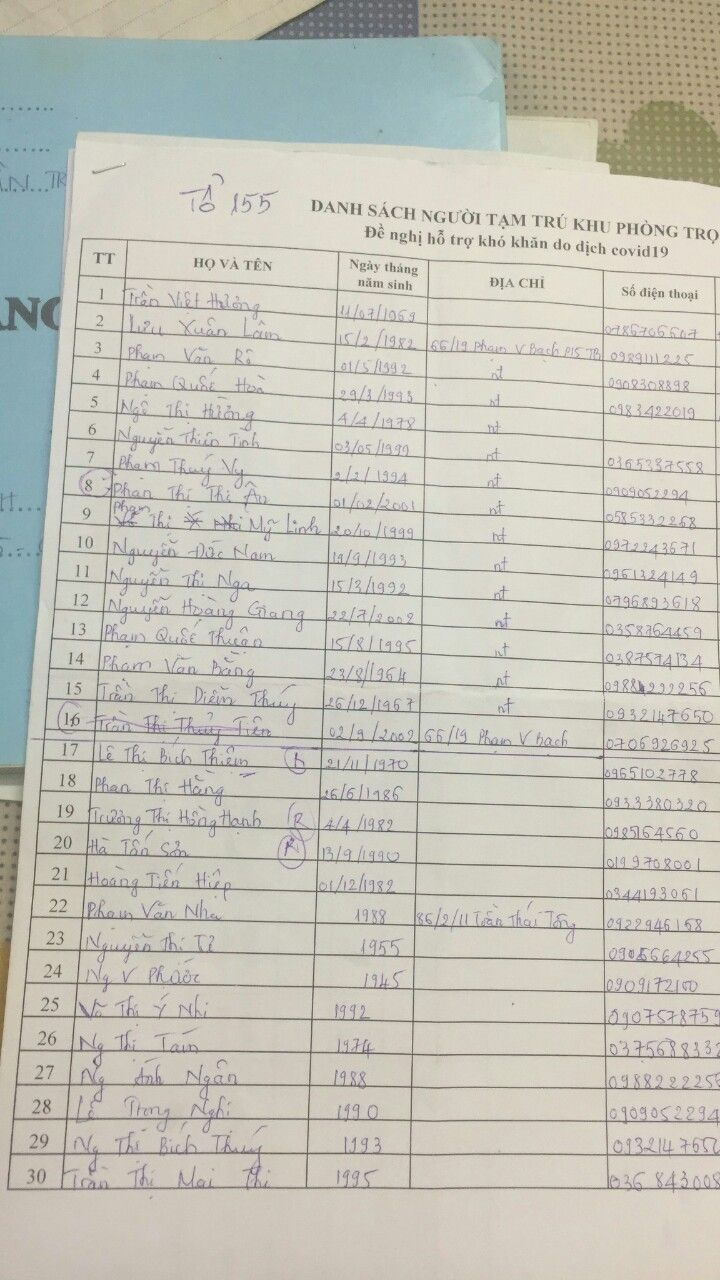 Tổ 155
DANH SÁCH NGƯỜI TẠM TRÚ KHU PHÒNG TRỌ
Đề nghị hỗ trợ khó khăn do dịch covid19
TT HỌ VÀ TÊN Ngày tháng năm sinh ĐỊA CHỈ Số điện thoại
1 Trần Việt Hưởng 11/07/1969 0785705507
2 Lưu Xuân Lâm 15/2/1982 66/19 Phạm V Bạch P15 TB 0989111225
3 Phạm Văn Rô 01/5/1992 nt 0908308898
4 Phạm Quốc Hoà 29/3/1993 nt 0983422019
5 Ngô Thị Hường 4/4/1978 nt
6 Nguyễn Thiên Tinh 03/05/1999 nt 0365387558
7 Phạm Thuý Vy 2/2/1994 nt 0909052294
8 Phan Thị Thi Ân 01/02/2001 nt 0585332268
9 Phạm Thị Mỹ Linh 20/10/1999 nt 0972243671
10 Nguyễn Đức Nam 19/9/1993 nt 0961324149
11 Nguyễn Thị Nga 15/3/1992 nt 0796893618
12 Nguyễn Hoàng Giang 22/7/2002 nt 0358764459
13 Phạm Quốc Thuận 15/8/1995 nt 0387574134
14 Phạm Văn Bằng 23/8/1964 nt
15 Trần Thị Diễm Thuý 26/12/1967 nt 0932147650
16 Trần Thị Thuỷ Tiên 02/9/2002 66/19 Phạm V Bạch 0706926925
17 Lê Thị Bích Thiêm 21/11/1970 0965102778
18 Phan Thị Hằng 26/6/1986 0933380320
19 Trương Thị Hồng Hạnh R 4/4/1982 0985164560
20 Hà Tấn Sơn R 13/9/1990 0199708001
21 Hoàng Tiến Hiệp 01/12/1982 0344193061
22 Phạm Văn Nhu 1988 86/2/11 Trần Thái Tông 0922946158
23 Nguyễn Thị Tê 1955 0906664255
24 Ng V Phước 1945 0909172100
25 Võ Thị Ý Nhi 1992 0907578759
26 Ng Thị Tám 1974 0375688332
27 Ng Ánh Ngân 1988 098822225
28 Lê Trọng Nghi 1990 0909052294
29 Ng Thị Bích Thuý 1993 093214765
30 Trần Thị Mai Thi 1995 036 843008